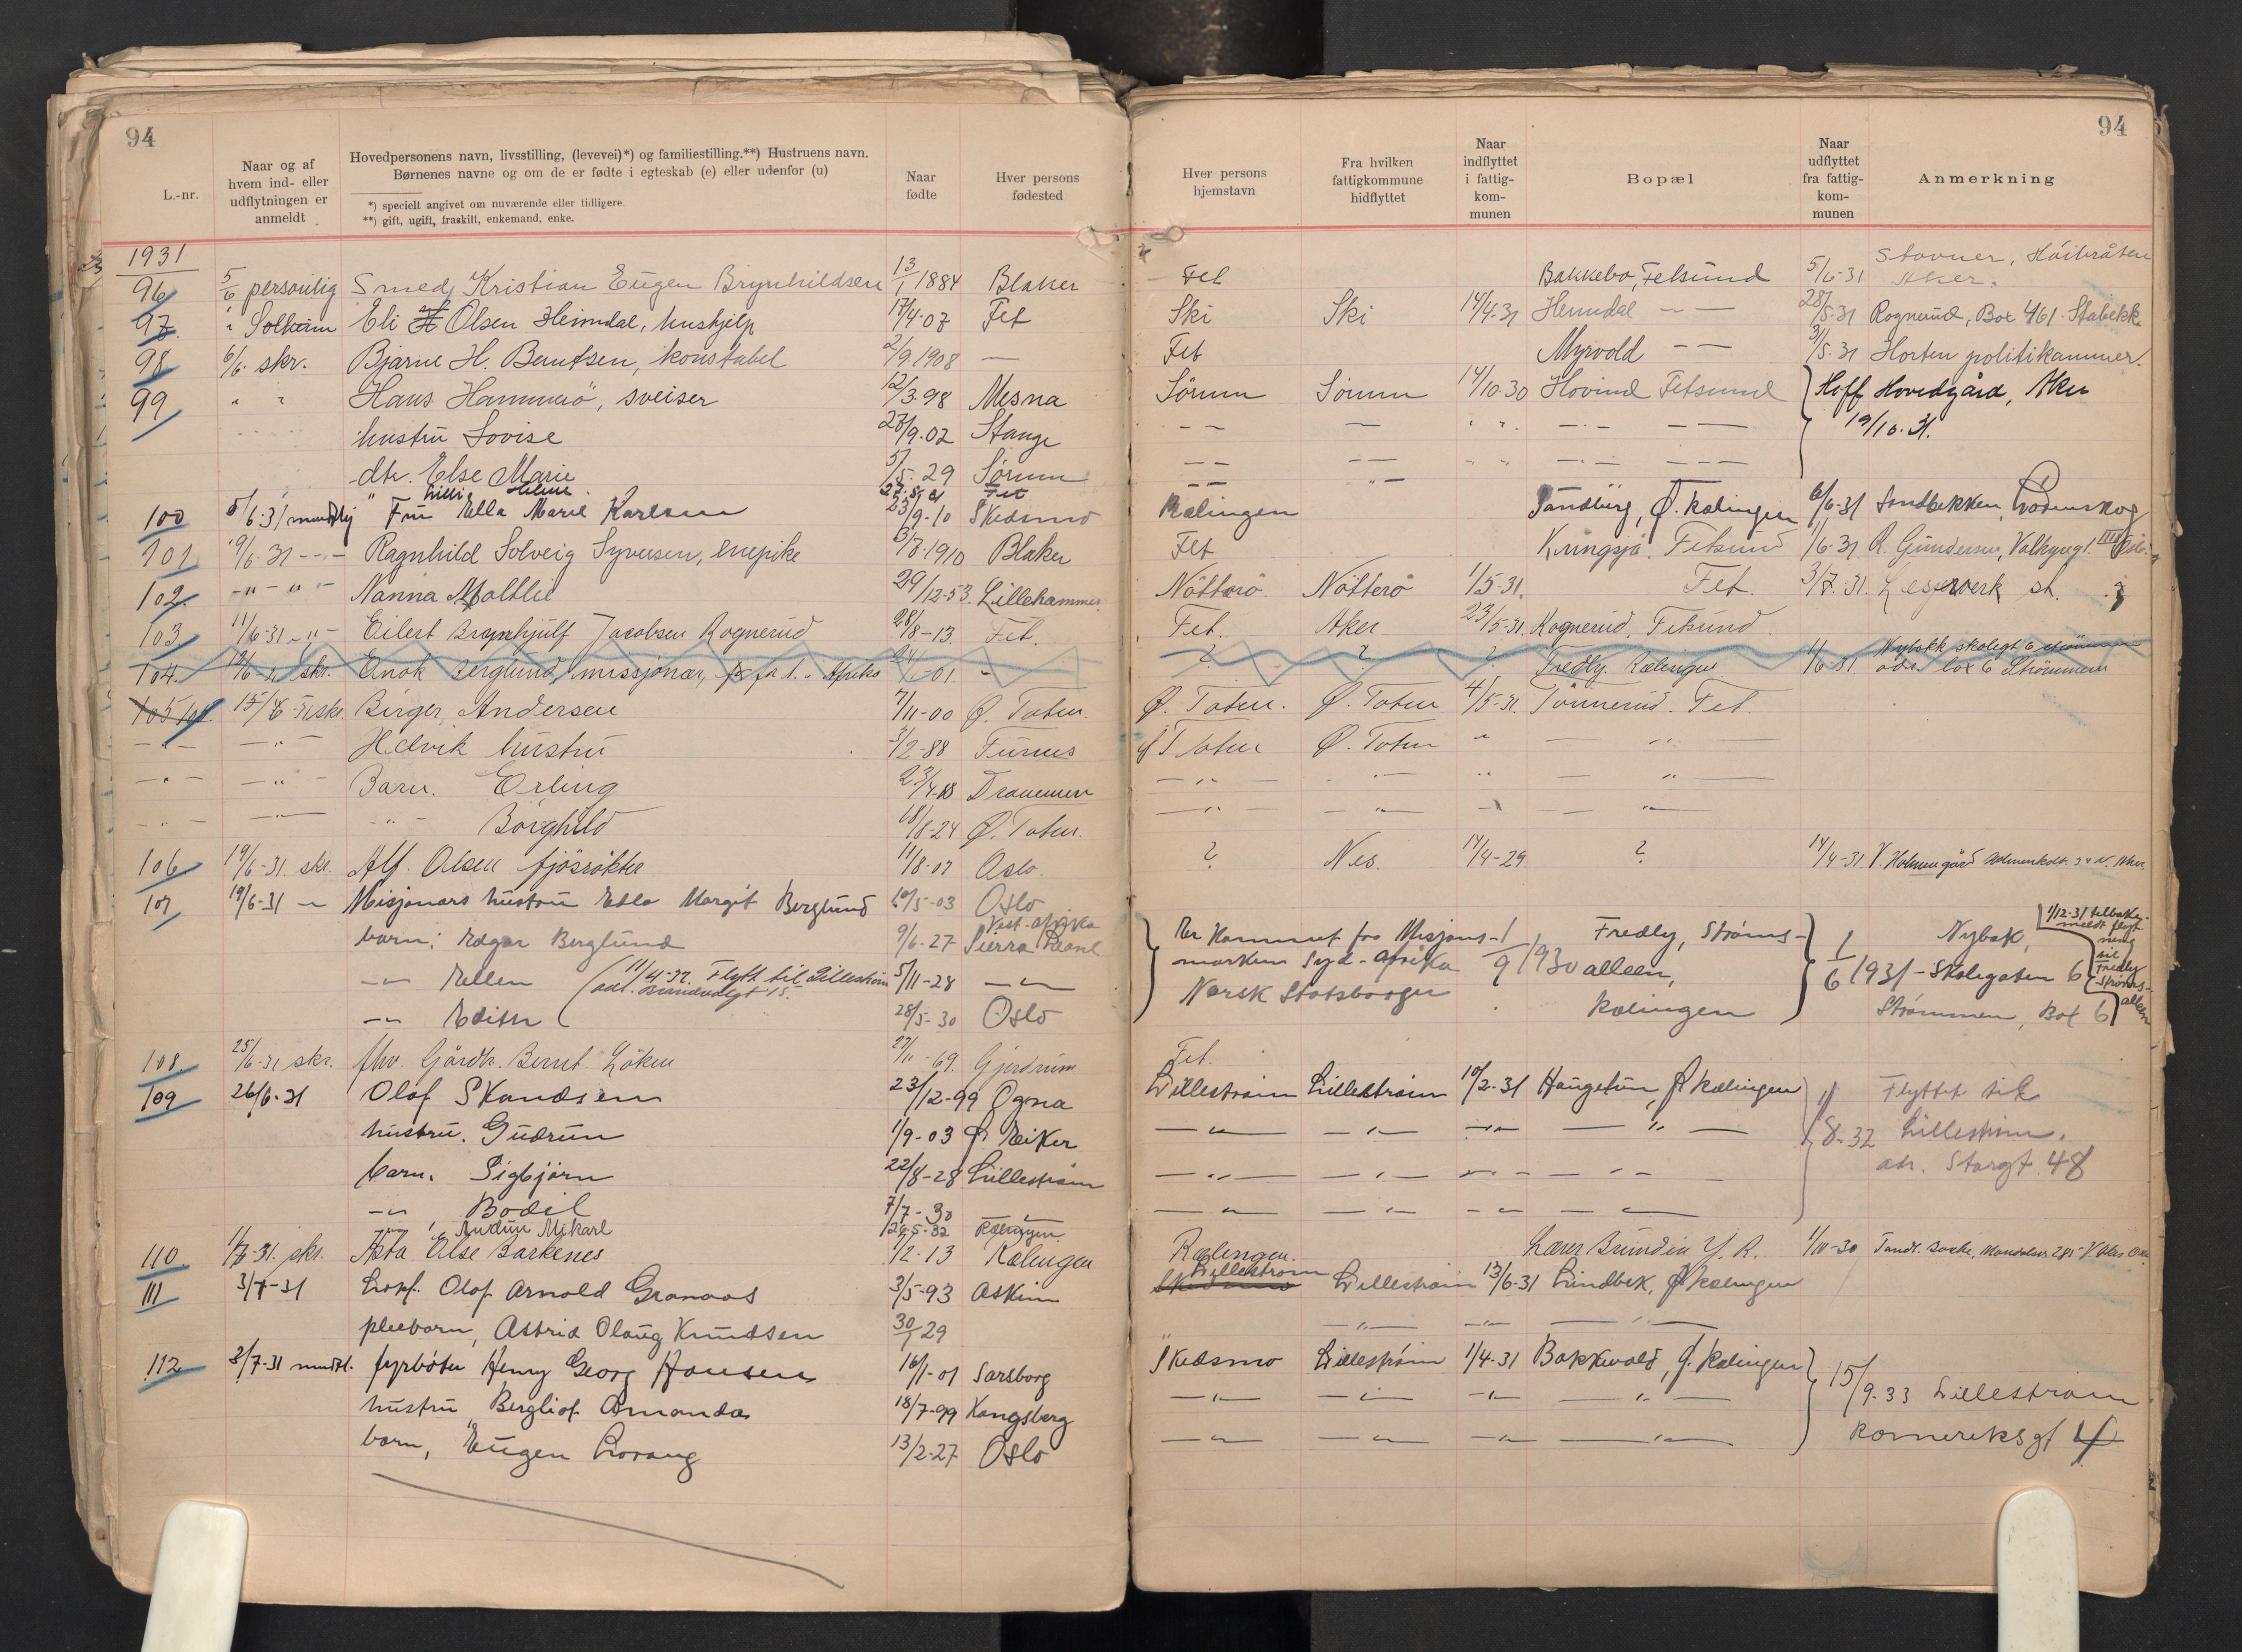 94
L.-nr.
Naar og af hvem ind- eller udflytningen er anmeldt
Hovedpersonens navn, livsstilling, (levevei)*) og familiestilling.**) Hustruens navn.
Børnenes navne og om de er fødte i egteskab (e) eller udenfor (u)
*) specielt angivet om nuværende eller tidligere.
**) gift, ugift, fraskilt, enkemand, enke.
Naar fødte
Hver persons fødested
Hver persons hjemstavn
Fra hvilken fattigkommune hidflyttet
Naar indflyttet i fattig-kom-munen
Bopæl
Naar udflyttet fra fattig-kom-munen
Anmerkning
94
1931
96 5/6 personlig Smed, Kristian Eugen Brynhildsen 13/1 1884 Blaker Fet Bakkebo, Fetsund 5/6-31 Stovner, Höibråten Aker.
97. " Solheim Eli Olsen Heimdal, hushjelp 17/4-07 Fet Ski Ski 14/4-31 Heimdal — — 28/5-31 Rognerud, Box 461 Stabekk
98 6/6. skr. Bjarne H. Berntsen, konstabel 2/9 1908 — Fet Myrvold — — 31/5.31 Horten politikammer.
99 " " Hans Hammerö, sveiser 12/3-98 Mesna Sörum Sörum 14/10.30 Hovind Fetsund Hoff Hovedgård, Aker
hustru Lovise 27/9-02 Stange — — — " " — — 19/10.31.
dtr. Else Marie 5/5-29 Sörum — — — — " " — —
Lilli Helene 27.5.01 Fet
100 5/6-31 mundtlig Fru Ella Marie Karlsen 23/9-10 Skedsmo Rælingen Sandberg, Ø. Rælingen 6/6-31 Sandbekken, Lörenskog
101 9/6-31 — Ragnhild Solveig Syversen, enepike 3/8-1910 Blaker Fet Kringsjå. Fetsund 1/6-31 R. Gundersen, Valkyrjgt. III Oslo
102. -"- "- Nanna Malthe 29/12-53. Lillehammer Nötterö. Nötterö 1/5-31. Fet. 3/7-31. Lesjaverk st.
103 11/6-31 -"- Eilert Brynhjulf Jacobsen Rognerud 28/8-13 Fet. Fet. Aker 23/5-31. Rognerud, Fetsund
104. 12/6-" skr. Enok Berglund, missjonær, f. fra 1. - Afrika -01 - ? ? ? Fredly. Rælingen 1/6-31 Nybakk skolegt. 6 Strömmen adr. box 6 Strömmen
105 104. 15/6-31 skr. Birger Andersen 7/11-00 Ø. Toten. Ø. Toten. Ø. Toten 4/5-31. Tönnerud. Fet.
— " — — " — Helvik hustru 3/2-88 Furnes Ø. Toten Ø. Toten " — " —
— " — — " — Barn. Erling 23/4-18 Drammen — " — — " — " — " —
— " — — " — Borghild 18/8-24 Ø. Toten. — " — — " — " — " —
106 19/6-31. skr. Alf Olsen fjösrökter 11/8-07 Oslo. ? Nes. 14/4-29 ? 14/4-31 V. Holmengård Holmenkolv. Aker.
107 19/6-31 — Misjonærs hustru Edla Margit Berglund 10/5-03 Oslo
barn: Edgar Berglund 9/6-27 Vest-afrika Sierra Leone Er kommet fra Misjons-marken Syd-Afrika Norsk Statsborger 1/9 1930 Fredly, Ströms-alleen, Rælingen 1/6 1931 - Nybak, Skolegaten 6 Strømmen, Box 6
1/12-31 tilbake-meldt flytning til Fredly Strøms-alleen
— " Ellen (11/4-32. Flytt. til Lilleström adr. Brandvalgt 15. 5/11-28 — " —
— " Edith 28/5-30 Oslo
108. 25/6-31 skr. fhv. Gårdbr. Bernt Löken 27/11-69. Gjerdrum Fet.
109 26/6-31 Olaf Skandsen 23/12-99 Ogna Lilleström Lilleström 10/2-31 Haugetun, Ø. Rælingen 1/8-32 Flyttet til Lilleström. adr. Storgt. 48
hustru. Gudrun 1/9-03 Ø. Eiker — " — — " — — " — — " —
barn. Sigbjörn 22/8-28 Lilleström — " — — " — — " — — " —
— " Bodil 7/7-30 — " — — " — — " — — " — — " —
Audun Mikael 26/5-32 Rælingen.
110. 1/7-31. skr. Asta Else Barkenes 1/2-13 Rælingen Rælingen. Lærer Brundin Y. R. 1/10-30
111 3/7-31 Lokf. Olaf Arnold Granaas 3/5-93 Askim Skedsmo Lilleström Lilleström 13/6-31 Lundbek, Ø. Rælingen
pleebarn, Astrid Olaug Knudsen 30/1 29 — " — — " — — " —
112 3/7-31 mundtl. fyrböter Henry Georg Hansen 16/1-01 Sarsborg Skedsmo Lilleström 1/4-31 Bakkevold, Ø. Rælingen 15/9-33 Lilleström Romeriksgt 4
hustru Bergliot Amanda 18/7-99 Kongsberg — " — — " — — " — — " —
barn, Eugen Lorang 13/2-27 Oslo — " — — " — — " — — " —